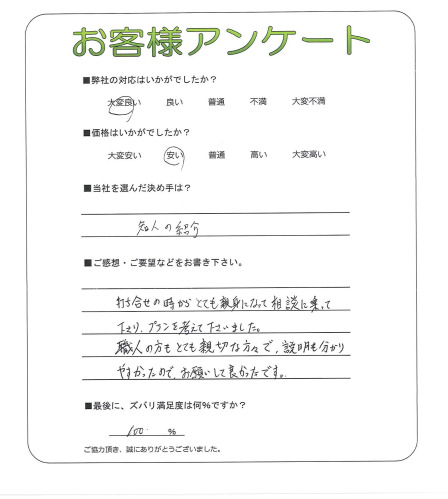 お客様アンケート
■弊社の対応はいかがでしたか?
大変良い 良い 普通 不満 大変不満
■価格はいかがでしたか?
大変安い 安い 普通 高い 大変高い
■当社を選んだ決め手は?
知人の紹介
■ご感想・ご要望などをお書き下さい。
打ち合せの時からとても親身になって相談に乗って
下さり、プランを考えて下さいました。
職人の方もとても親切な方々で、説明も分かり
やすかったので、お願いして良かったです。
■最後に、ズバリ満足度は何%ですか?
100 %
ご協力頂き、誠にありがとうございました。